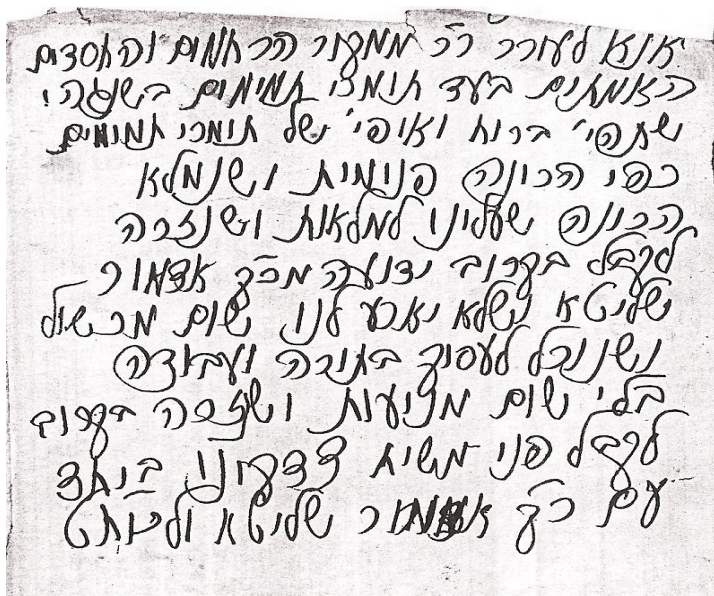 אנא לעורר ר"ר ממקור הרחמים והחסדים
האמתים בעד תומכי תמימים בשנגהי
שתהי' ברוח ואופי' של תומכי תמימים
כפי הכונה פנימית ושנמלא
הכונה שעלינו למלאות ושנזכה
לקבל בקרוב ידועה מכ"ק אדמור
שליטא ושלא יארע לנו שום מכשול
ושנוכל לעסוק בתורה ועבודה
בלי שום מניעות ושנזכה בקרוב
לקבל פני משיח צדקינו ביחד
עם כ"ק אדמור שליטא